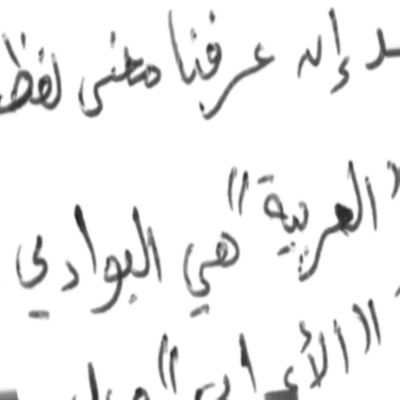 إن عرفنا معنى لفظ
"العربية" هي البوادي
"الأعراب"